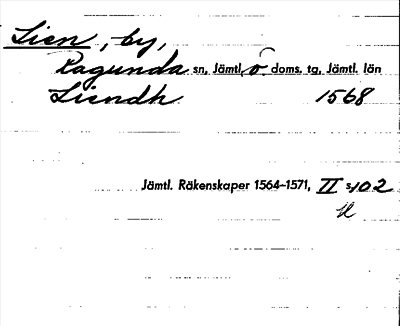 Lien, by,
Ragunda sn, Jämtl. ö doms. tg, Jämtl. län
Liendh 1568
Jämtl. Räkenskaper 1564–1571, II s. 102